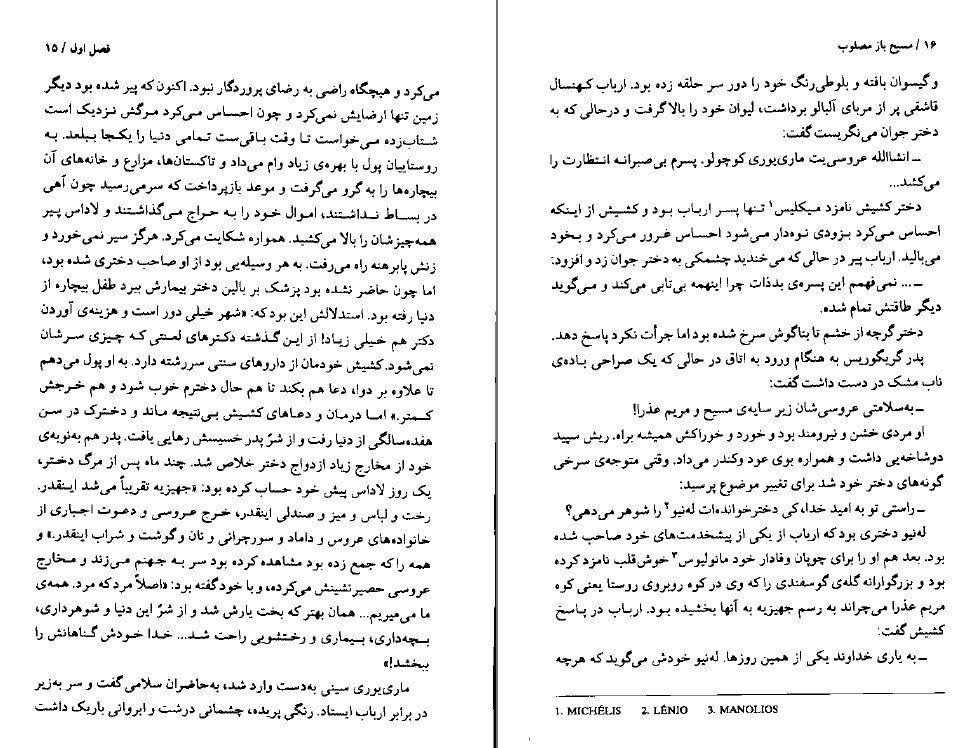 فصل اول / ۱۵
می‌کرد و هیچگاه راضی به رضای پروردگار نبود. اکنون که پیر شده بود دیگر
زمین تنها ارضایش نمی‌کرد و چون احساس می‌کرد مرگش نزدیک است
شتاب‌زده می‌خواست تا وقت باقی‌ست تمامی دنیا را یکجا ببلعد. به
روستاییان پول با بهره‌ی زیاد وام می‌داد و تاکستان‌ها، مزارع و خانه‌های آن
بیچاره‌ها را به گرو می‌گرفت و موعد بازپرداخت که سرمی‌رسید چون آهی
در بساط نداشتند، اموال خود را به حراج می‌گذاشتند و لاداس پیر
همه‌چیزشان را بالا می‌کشید. همواره شکایت می‌کرد. هرگز سیر نمی‌خورد و
زنش پابرهنه راه می‌رفت. به هر وسیله‌یی بود از او صاحب دختری شده بود،
اما چون حاضر نشده بود پزشک بر بالین دختر بیمارش ببرد طفل بیچاره از
دنیا رفته بود. استدلالش این بود که: «شهر خیلی دور است و هزینه‌ی آوردن
دکتر هم خیلی زیاد! از این گذشته دکترهای لعنتی که چیزی سرشان
نمی‌شود. کشیش خودمان از داروهای سنتی سررشته دارد. به او پول می‌دهم
تا علاوه بر دوا، دعا هم بکند تا هم حال دخترم خوب شود و هم خرجش
کمتر.» اما درمان و دعاهای کشیش بی‌نتیجه ماند و دخترک در سن
هفده‌سالگی از دنیا رفت و از شرّ پدر خسیسش رهایی یافت. پدر هم به‌نوبه‌ی
خود از مخارج زیاد ازدواج دختر خلاص شد. چند ماه پس از مرگ دختر،
یک روز لاداس پیش خود حساب کرده بود: «جهیزیه تقریباً می‌شد اینقدر.
رخت و لباس و میز و صندلی اینقدر، خرج عروسی و دعوت اجباری از
خانواده‌های عروس و داماد و سورچرانی و نان وگوشت و شراب اینقدر.» و
همه را که جمع زده بود مشاهده کرده بود سر به جهنم می‌زند و مخارج
عروسی حصیرنشینش می‌کرده، و با خود گفته بود: «اصلاً مرد که مرد. همه‌ی
ما می‌میریم... همان بهتر که بخت یارش شد و از شرّ این دنیا و شوهرداری،
بچه‌داری، بیماری و رختشویی راحت شد... خدا خودش گناهانش را
ببخشد!»
ماری‌یوری سینی به‌دست وارد شد، به‌حاضران سلامی گفت و سر به‌زیر
در برابر ارباب ایستاد. رنگی پریده، چشمانی درشت و ابروانی باریک داشت
۱۶ / مسیح باز مصلوب
و گیسوان بافته و بلوطی‌رنگ خود را دور سر حلقه زده بود. ارباب کهنسال
قاشقی پر از مربای آلبالو برداشت، لیوان خود را بالا گرفت و درحالی که به
دختر جوان می‌نگریست گفت:
ـ انشاالله عروسی‌یت ماری‌یوری کوچولو. پسرم بی‌صبرانه انتظارت را
می‌کشد...
دختر کشیش نامزد میکلیس۱ تنها پسر ارباب بود و کشیش از اینکه
احساس می‌کرد بزودی نوه‌دار می‌شود احساس غرور می‌کرد و بخود
می‌بالید. ارباب پیر در حالی که می‌خندید چشمکی به دختر جوان زد و افزود:
ـ ... نمی‌فهمم این پسره‌ی بدذات چرا اینهمه بی‌تابی می‌کند و می‌گوید
دیگر طاقتش تمام شده.
دختر گرچه از خشم تا بناگوش سرخ شده بود اما جرأت نکرد پاسخ دهد.
پدر گریگوریس به هنگام ورود به اتاق در حالی که یک صراحی باده‌ی
ناب مشک در دست داشت گفت:
ـ به‌سلامتی عروسی‌شان زیر سایه‌ی مسیح و مریم عذرا!
او مردی خشن و نیرومند بود و خورد و خوراکش همیشه براه. ریش سپید
دوشاخه‌یی داشت و همواره بوی عود وکندر می‌داد. وقتی متوجه‌ی سرخی
گونه‌های دختر خود شد برای تغییر موضوع پرسید:
ـ راستی تو به امید خدا، کی دخترخوانده‌ات له‌نیو۲ را شوهر می‌دهی؟
له‌نیو دختری بود که ارباب از یکی از پیشخدمت‌های خود صاحب شده
بود. بعد هم او را برای چوپان وفادار خود مانولیوس۳ خوش‌قلب نامزد کرده
بود و بزرگوارانه گله‌ی گوسفندی را که وی در کوه روبروی روستا یعنی کوه
مریم عذرا می‌چراند به رسم جهیزیه به آنها بخشیده بود. ارباب در پاسخ
کشیش گفت:
ـ به یاری خداوند یکی از همین روزها. له‌نیو خودش می‌گوید که هرچه
1. MICHÉLIS 2. LÉNIO 3. MANOLIOS